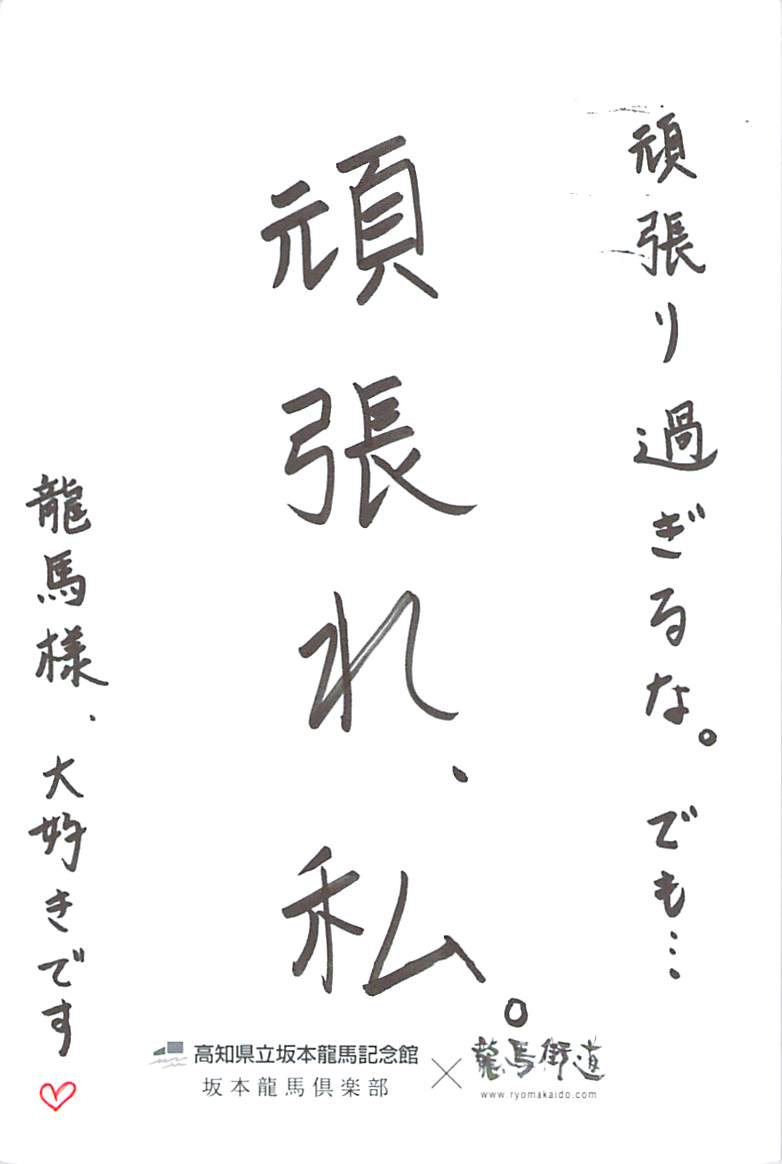 頑張り過ぎるな。でも…
頑張れ、私。
龍馬様、大好きです♡
高知県立坂本龍馬記念館
坂本龍馬倶楽部
×
龍馬街道
www.ryomakaido.com